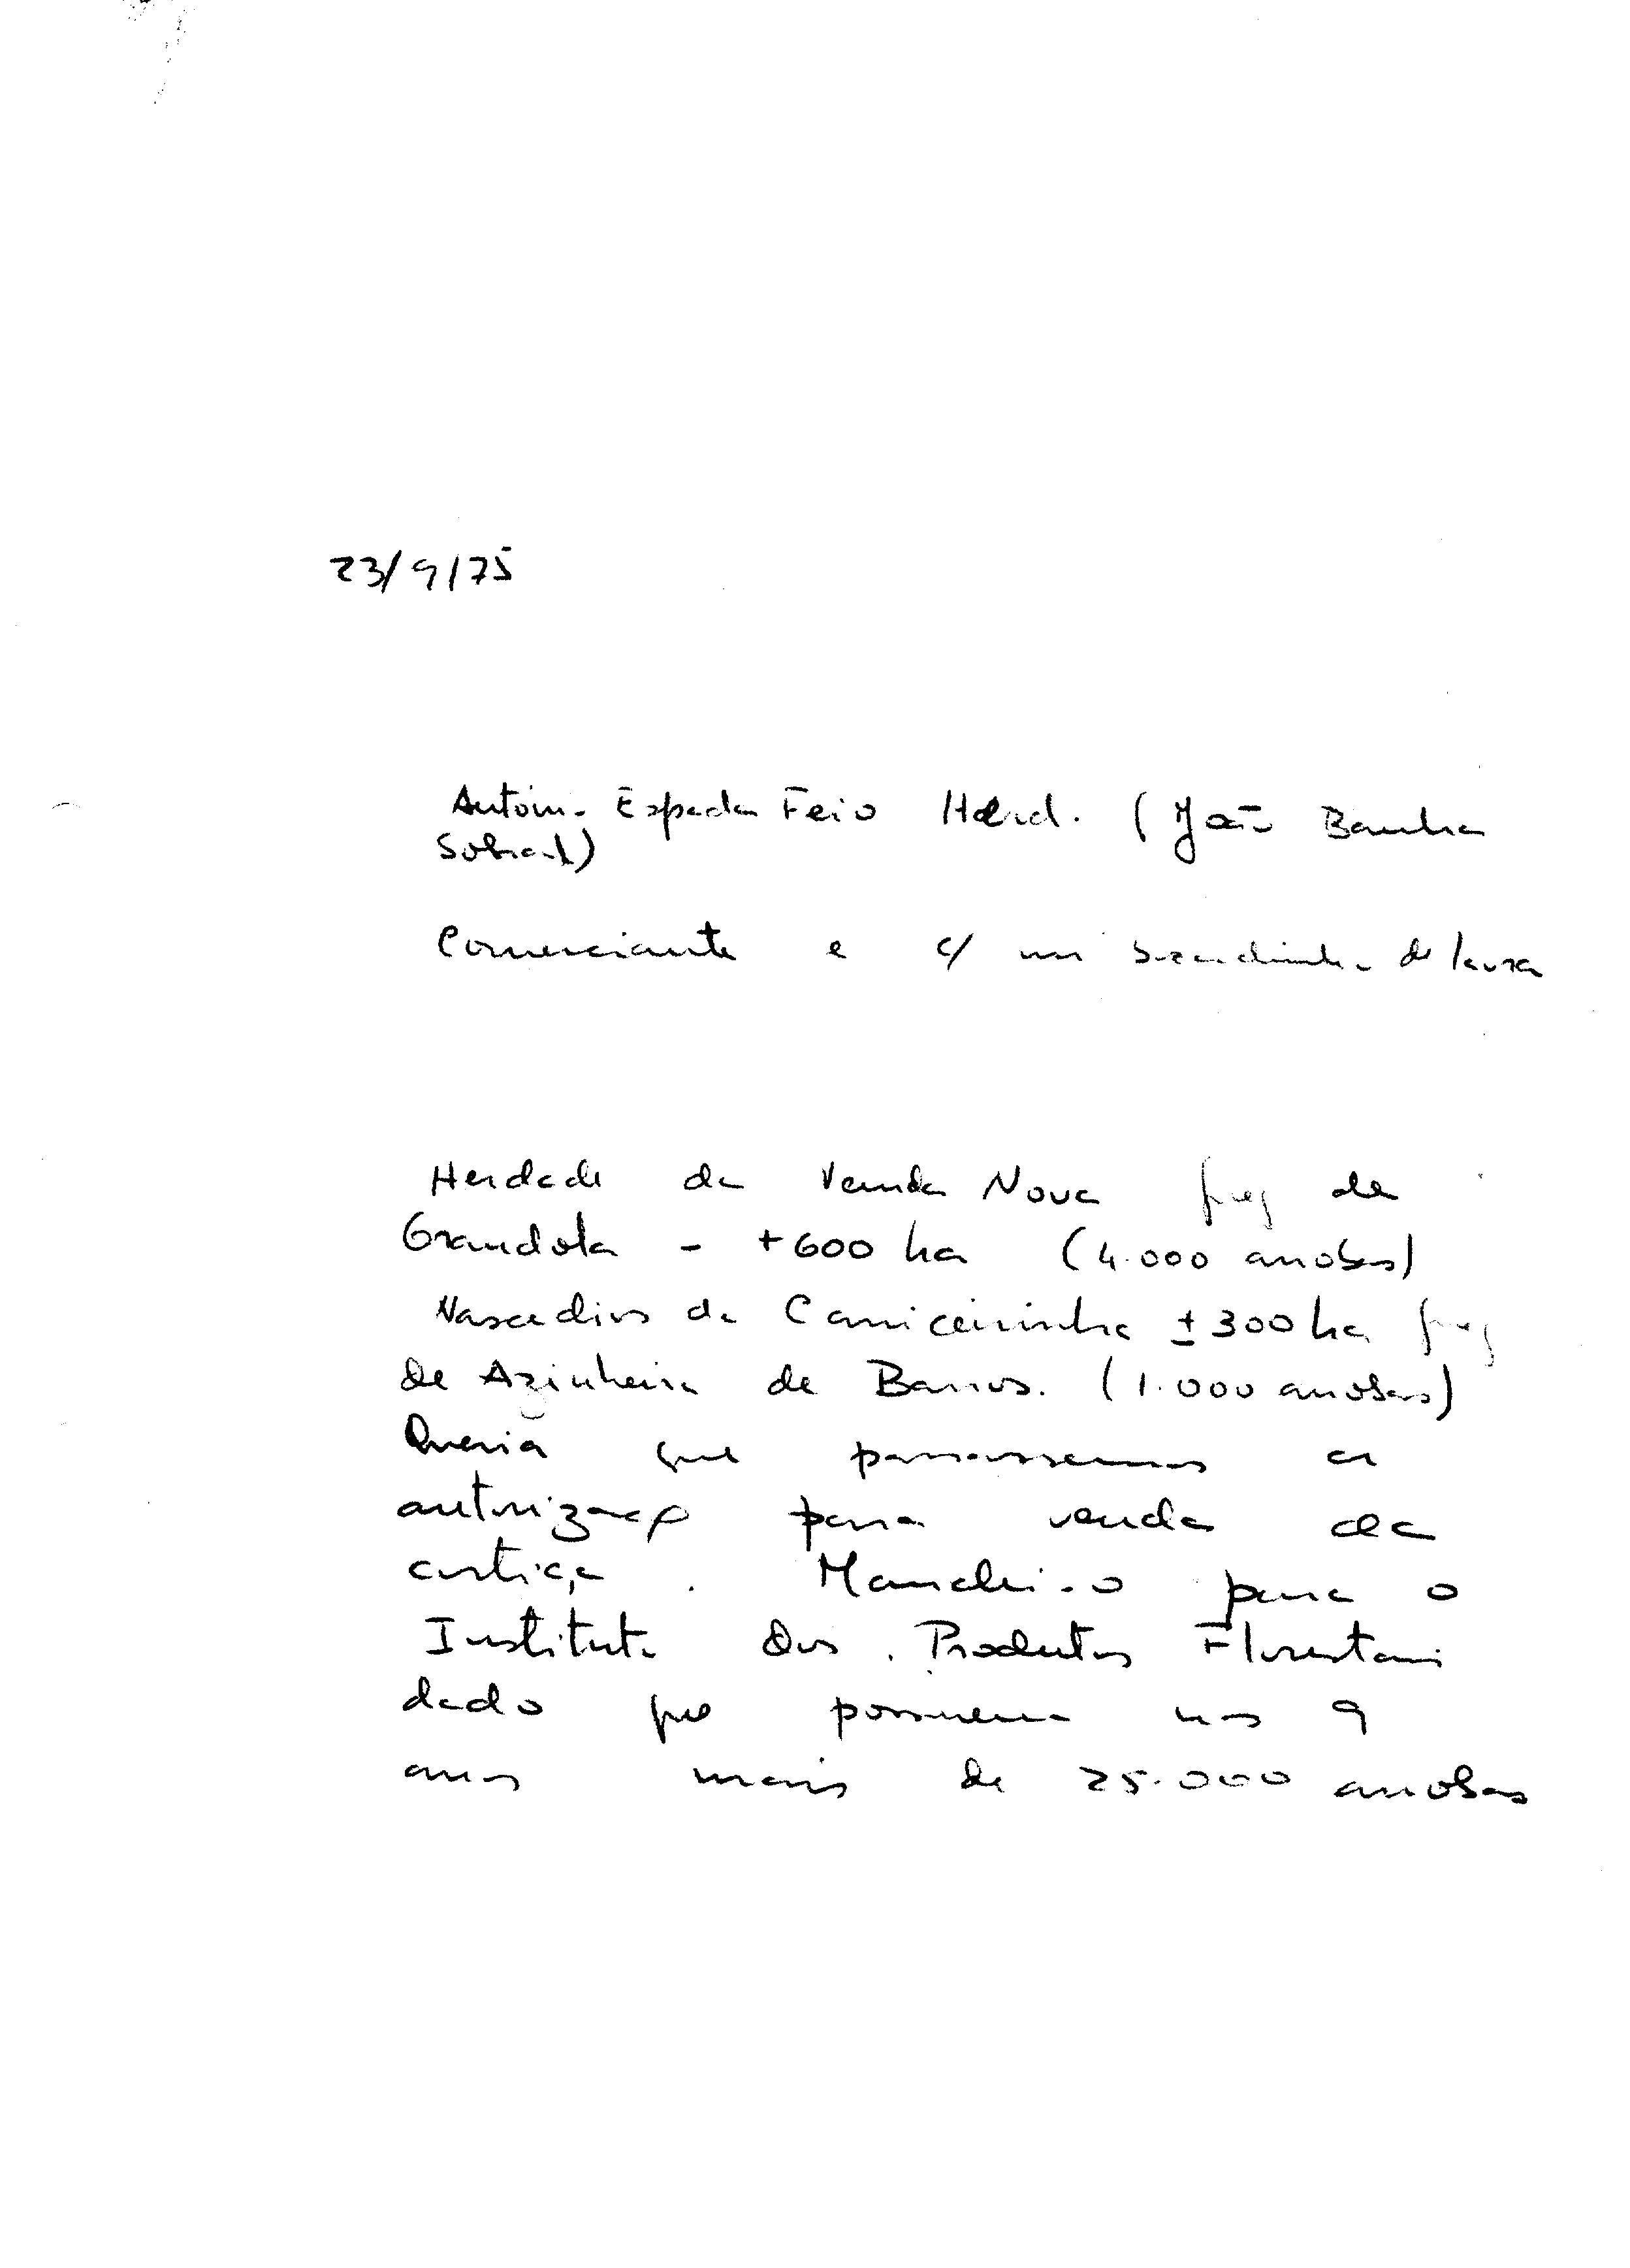 23/9/75
António Espada Feio Herd. (João Banha
Sobral)
Comerciante e c/ um bocadinho de lavra
Herdade da Venda Nova freg de
Grandola - +600 ha (4.000 arrobas)
Nascedios da Carniceirinha ±300 ha freg
de Azinheira de Barros. (1.000 arrobas)
Queria que passassemos a
autorização para venda da
cortiça. Mandei-o para o
Instituto dos Produtos Florestais
dado que possuem nos 9
anos mais de 25.000 arrobas